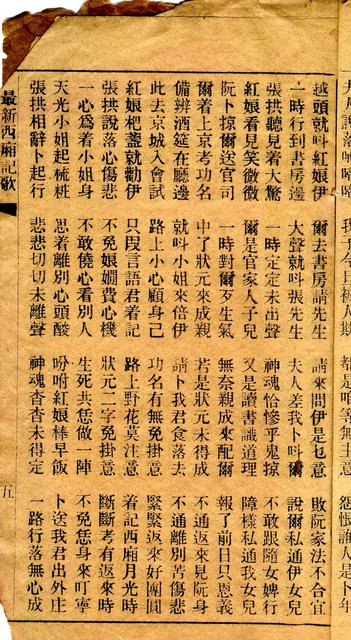 越頭就呌紅娘伊 爾去書房請先生 請來問伊是乜意 敗阮家法不合官
一時行到書房邊 大聲就呌張先生 夫人差我卜呌爾 說爾私通伊女兒
張拱聽見着大驚 一時定定未出聲 神魂恰慘乎鬼掠 不敢跟隨女婢行
紅娘看見笑微微 爾是官家人子兒 又是讀書識道理 障樣私通我女兒
阮卜掠爾送官司 一時對爾歹生氣 無奈親成來配爾 報了前日只恩義
爾着上京考功名 中了狀元來成親 若是狀元未得成 不通返來見阮身
備辨酒筵在廳邊 就呌小姐來倍伊 請卜我君食落去 不通離別苦傷悲
此去京城入會試 路上小心顧身己 功名有無免掛意 緊緊返來好團圓
紅娘杷盞就勸伊 只叚言語君着記 路上野花莫注意 着記西廂月光時
張拱說落心傷悲 不免娘嫺費心機 狀元二字免掛意 斷斷考有返來時
一心為着小姐身 不敢僥心看別人 生死共恁做一陣 不免恁身來叮寧
天光小姐起梳粧 思着離別心頭酸 吩咐紅娘棒早飯 卜送我君出外庄
張拱相辭卜起行 悲悲切切未離聲 神魂杳杳未得定 一路行落無心成
最新西廂記歌 五